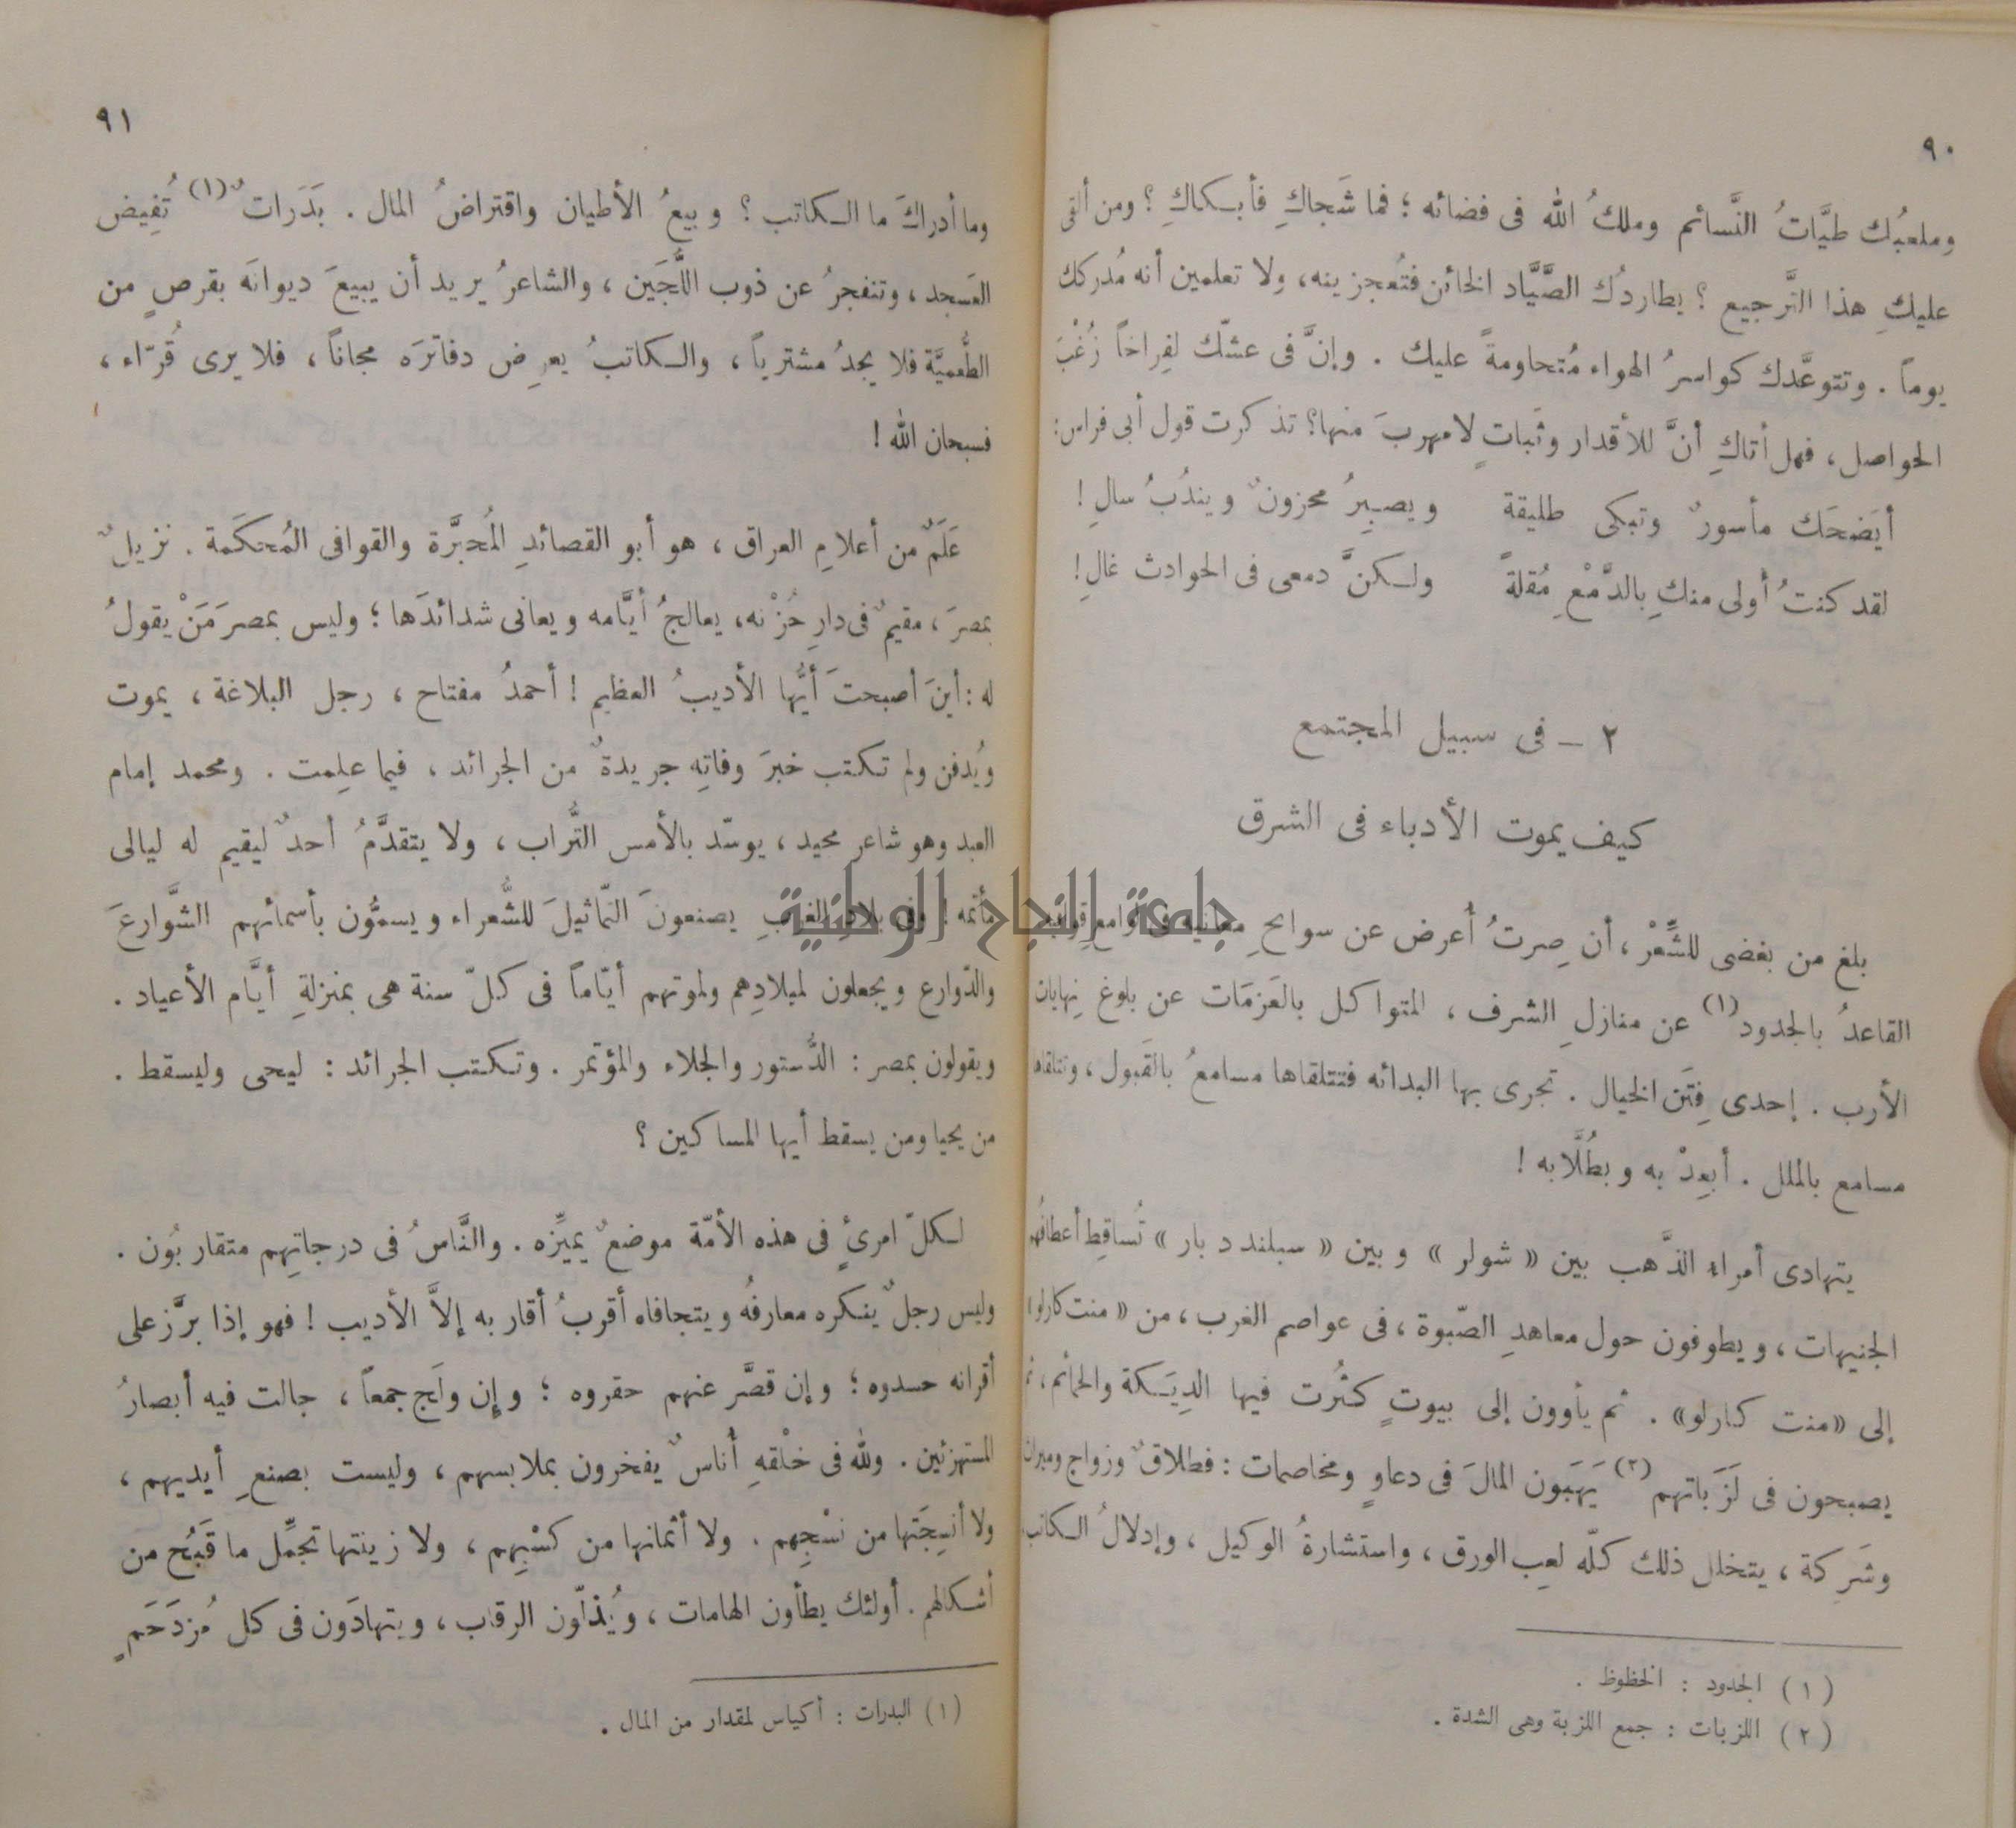 ٩٠
وملعبُك طيَّاتُ النَّسائم وملكُ الله فى فضائه ؛ فما شَجاكِ فأبكاكِ ؟ ومن ألقى
عليكِ هذا التَّرجيع ؟ يطاردُك الصَّيَّاد الخائن فتُعجزينه، ولا تعلمين أنه مُدركك
يوماً . وتتوعَّدك كواسرُ الهواء مُتحاومةً عليك . وإنَّ فى عشّك لفِراخاً زُغْبَ
الحواصل، فهل أتاكِ أنَّ للأقدار وثَباتٍ لامهربَ منها؟ تذكرت قول أبى فراس:
أيَضحَك مأسورٌ وتبكى طليقة ويصبِرُ محزونٌ ويندُبُ سالِ !
لقد كنتُ أولى منكِ بالدَّمْعِ مُقلةً ولكنَّ دمعى فى الحوادث غالِ!
٢ – فى سبيل المجتمع
كيف يموت الأدباء فى الشرق
بلغ من بغضى للشِّعْر ، أن صِرتُ أعرض عن سوانحِ معانيه فى لوامع قوافيه
القاعدُ بالجدود (١) عن منازلِ الشرف ، المتواكل بالعَزمَات عن بلوغ نِهايات
الأرب . إحدى فِتَن الخيال . تجرى بها البدائه فتتلقاها مسامعُ بالقَبول ، وتتلقاها
مسامع بالملل . أبعِدْ به وبطُلَّابه !
يتهادى أمراء الذَّهب بين « شولر » وبين « سبلندد بار » تُساقِط أعطافُهم
الجنيهات ، ويطوفون حول معاهدِ الصّبوة ، فى عواصم الغرب ، من « منت كارلو »
إلى «منت كارلو» . ثم يأوون إلى بيوتٍ كثُرت فيها الدِيَكة والحمائم ، ثم
يصبحون فى لَزَباتهم (٢) يَهَبَون المالَ فى دعاوٍ ومخاصمات : فطلاقٌ وزواج وميراث
وشَرِكة ، يتخلل ذلك كلّه لعِب الورق ، واستشارةُ الوكيل ، وإدلالُ الكاتب
(١) الجدود : الحظوظ .
(٢) اللزبات : جمع اللزبة وهى الشدة .
٩١
وما أدراكَ ما الكاتب ؟ وبيعُ الأطيان واقتراضُ المال . بَدَراتٌ (١) تُفِيض
العَسجد ، وتنفجرُ عن ذوب اللُّجَين ، والشاعرُ يريد أن يبيعَ ديوانَه بقرصٍ من
الطَّعميَّة فلا يجدُ مشترياً ، والكاتبُ يعرِض دفاترَه مجاناً ، فلا يرى قُرّاء ،
فسبحان الله !
عَلَمٌ من أعلامِ العراق ، هو أبو القصائدِ المُحبَّرة والقوافى المُحكَمة . نزيلٌ
بمصرَ ، مقيمٌ فى دارِ حُزْنه، يعالجُ أيَّامه ويعانى شدائدَها ؛ وليس بمصرَ مَنْ يقولُ
له : أينَ أصبحتَ أيُّها الأديبُ العظيم ! أحمدُ مفتاح ، رجل البلاغة ، يموت
ويُدفن ولم تكتب خبرَ وفاتِه جريدةٌ من الجرائد ، فيما علِمت . ومحمد إمام
العبد وهو شاعر مجيد ، يوسّد بالأمس التُّراب ، ولا يتقدَّمُ أحدٌ ليقيم له ليالى
مأتمه ! وفى بلادِ الغربِ يصنعونَ التّماثيلَ للشُّعراء ويسمُّون بأسمائهم الشَّوارعَ
والدّوارع ويجعلون لميلادِهم ولموتهم أيّاماً فى كلّ سنة هى بمنزلةِ أيَّام الأعياد .
ويقولون بمصر : الدُّستور والجلاء والمؤتمر . وتكتب الجرائد : ليحى وليسقط .
من يحيا ومن يسقط أيها المساكين ؟
لكلّ امرئٍ فى هذه الأمّة موضعٌ يميِّزه . والنَّاسُ فى درجاتِهم متقاربُون .
وليس رجلٌ ينكره معارفهُ ويتجافاه أقربُ أقاربه إلاَّ الأديب ! فهو إذا برَّز على
أقرانه حسدوه ؛ وإن قصَّر عنهم حقروه ؛ وإن ولَج جمعاً ، جالت فيه أبصارُ
المستهزئين . ولله فى خلْقهِ أُناسٌ يفخرون بملابسهم ، وليست بصنعِ أيديهم ،
ولا أنسِجَتها من نسْجِهم . ولا أثمانها من كسْبِهم ، ولا زينتها تجمِّل ما قَبُح من
أشكالهم . أولئك يطأون الهامات ، ويُذلّون الرقاب ، ويتهادَون فى كل مُزدَحَمٍ
(١) البدرات : أكياس لمقدار من المال .
جامعة النجاح الوطنية